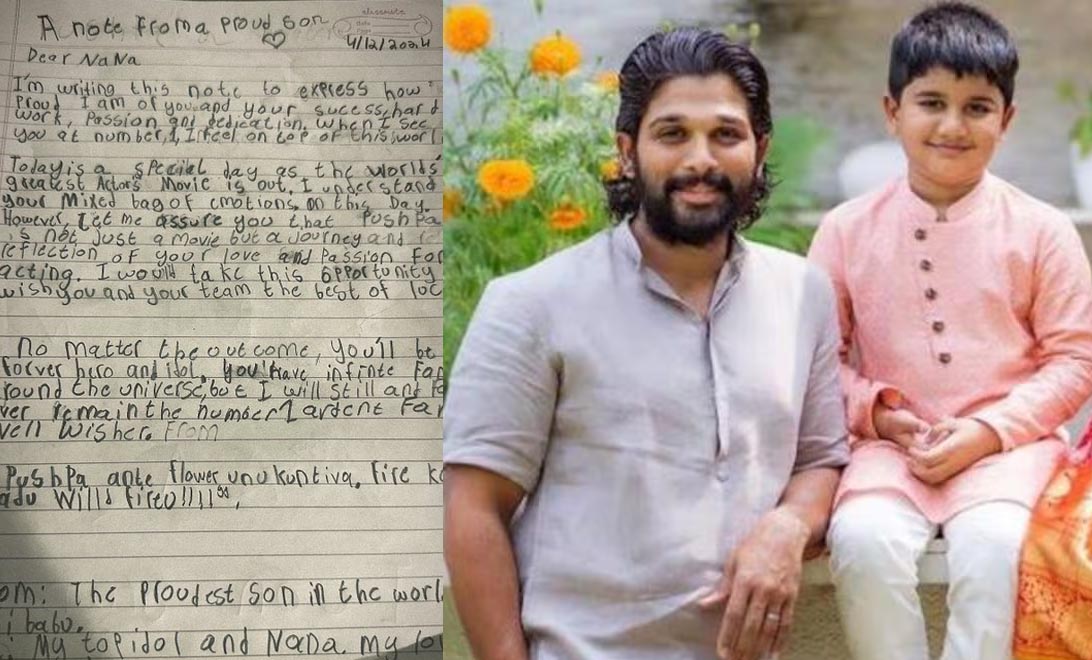 A note from a proud son
classmate
4/12/2024
Dear NaNa
I'm writing this note to express how
Proud I am of you and your sucess, hard
work, Passion and dedication. When I see
you at number 1, I feel on top of this worl
Today is a special day as the World's
greatest Actor's Movie is out. I understand
your Mixed bag of emotions on this Day.
However, Let me assure you that PushPa
is not just a movie but a Journey and
reflection of your love and Passion for
acting. I would take this opportunity
wish you and your team the best of loc
No matter the outcome, you'll be
forver hero and idol. You have infinte Fan
round the universe, but I will still and
ver remain the number 1 ardent Fan
well wisher. From
PushPa ante flower unukuntiva, fire ka
adu Willd fireu!!!!
om: The Proudest Son in the worl
i babu.
My top idol and Nana. my lo